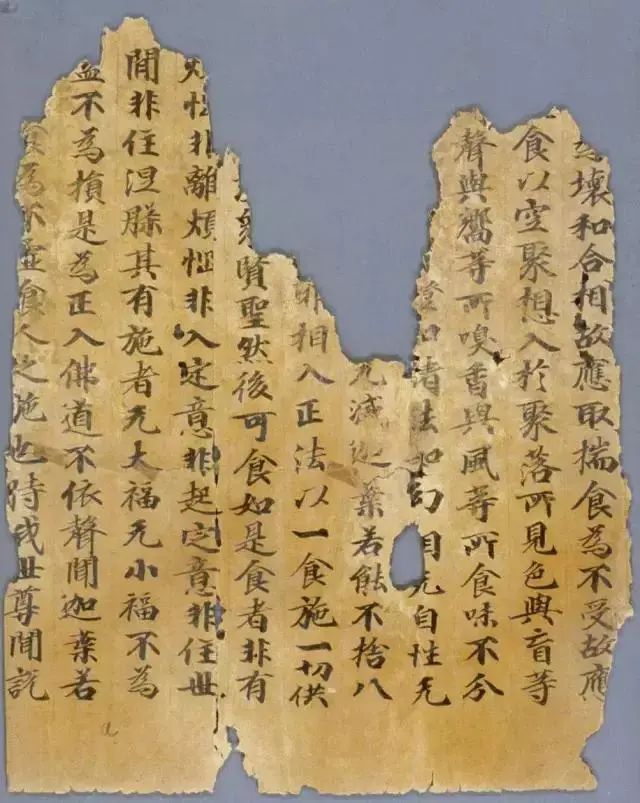 為壞和合相故應取揣食為不受故應
食以空聚想入於聚落所見色與盲等
聲與嚮等所嗅香與風等所食味不分
知諸法如幻相无自性无
无滅迦葉若能不捨八
邪相入正法以一食施一切供
眾賢聖然後可食如是食者非有
惱非離煩惱非入定意非起定意非住世
間非住涅槃其有施者无大福无小福不為
益不為損是為正入佛道不依聲聞迦葉若
食為不空食人之施也時我世尊聞說